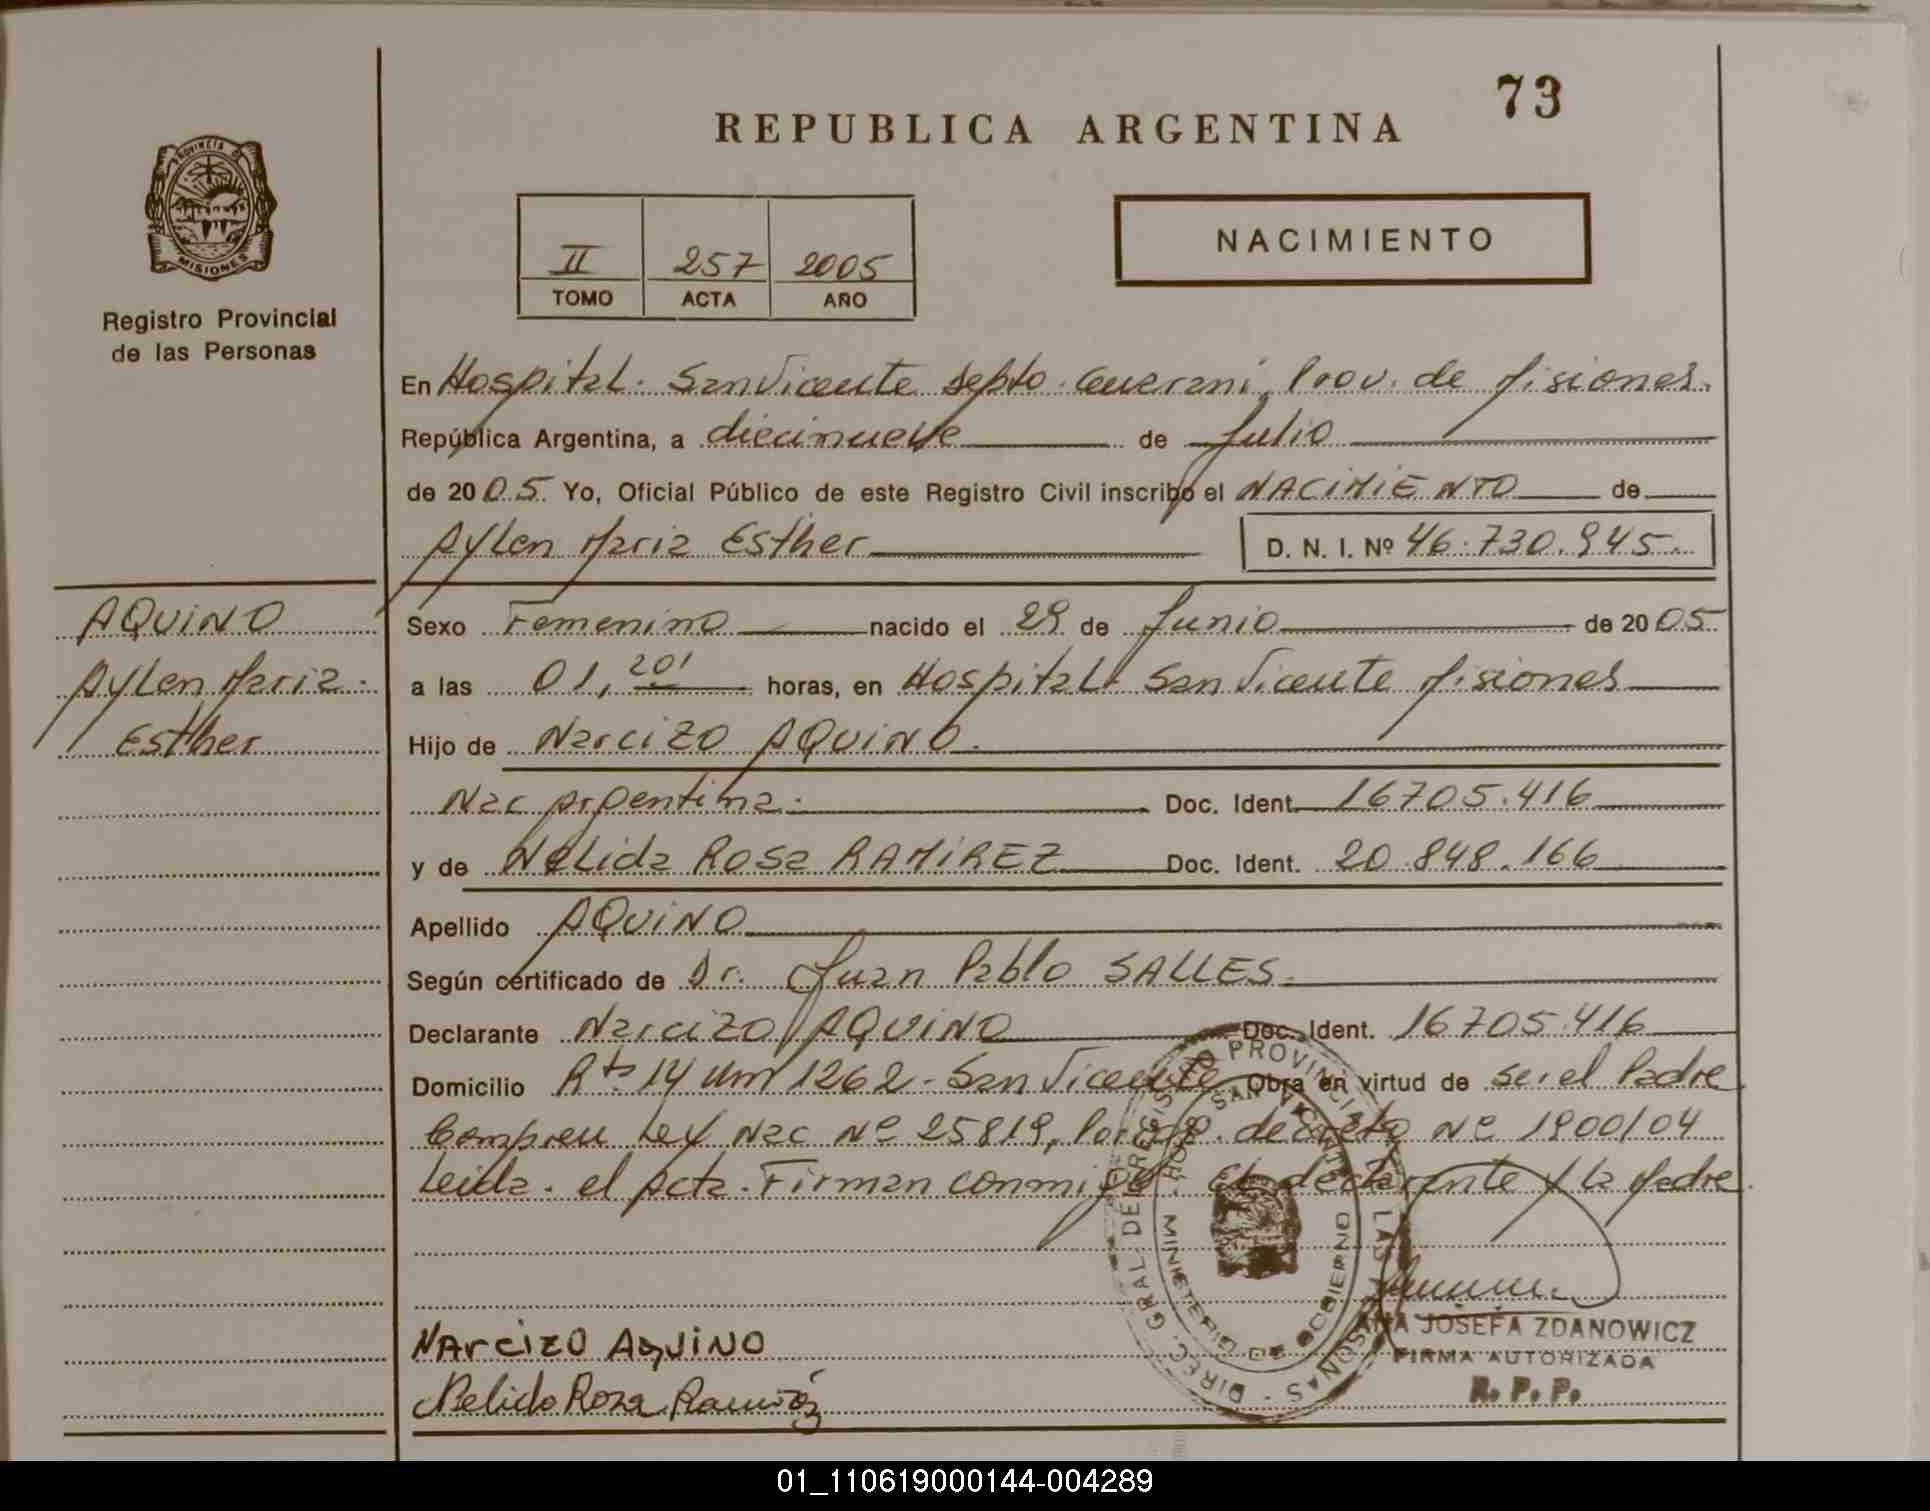 73
REPUBLICA ARGENTINA
PROVINCIA D
MISIONES
Registro Provincial
de las Personas
II 257 2005
TOMO ACTA AÑO
NACIMIENTO
En Hospital. San Vicente Depto. Guarani, Prov. de Misiones.
República Argentina, a diecinueve de Julio
de 2005. Yo, Oficial Público de este Registro Civil inscribo el NACIMIENTO de
Aylen Maria Esther D. N. I. Nº 46.730.945.
AQUINO
Aylen Maria.
Esther
Sexo Femenino nacido el 29 de Junio de 2005
a las 01, 20' horas, en Hospital San Vicente Misiones
Hijo de Narcizo AQUINO.
Nac Argentina. Doc. Ident. 16705.416
y de Nelida Rosa RAMIREZ Doc. Ident. 20.848.166
Apellido AQUINO
Según certificado de Dr. Juan Pablo SALLES.
Declarante Narcizo AQUINO Doc. Ident. 16705.416
Domicilio Rta 14 Km 1262 - San Vicente Obra en virtud de ser el Padre
Ley Nac Nº 25819, decreto Nº 1900/04
Leida. el Acta. Firman conmigo. El declarante y la Madre.
DIREC. GRAL. DEL REGISTRO PROVINCIAL DE LAS PERSONAS
HOSP. SAN VICENTE
MINISTERIO DE GOBIERNO
NARCIZO AQUINO
Nelida Roza Ramiréz
ANA JOSEFA ZDANOWICZ
FIRMA AUTORIZADA
R. P. P.
01_110619000144-004289